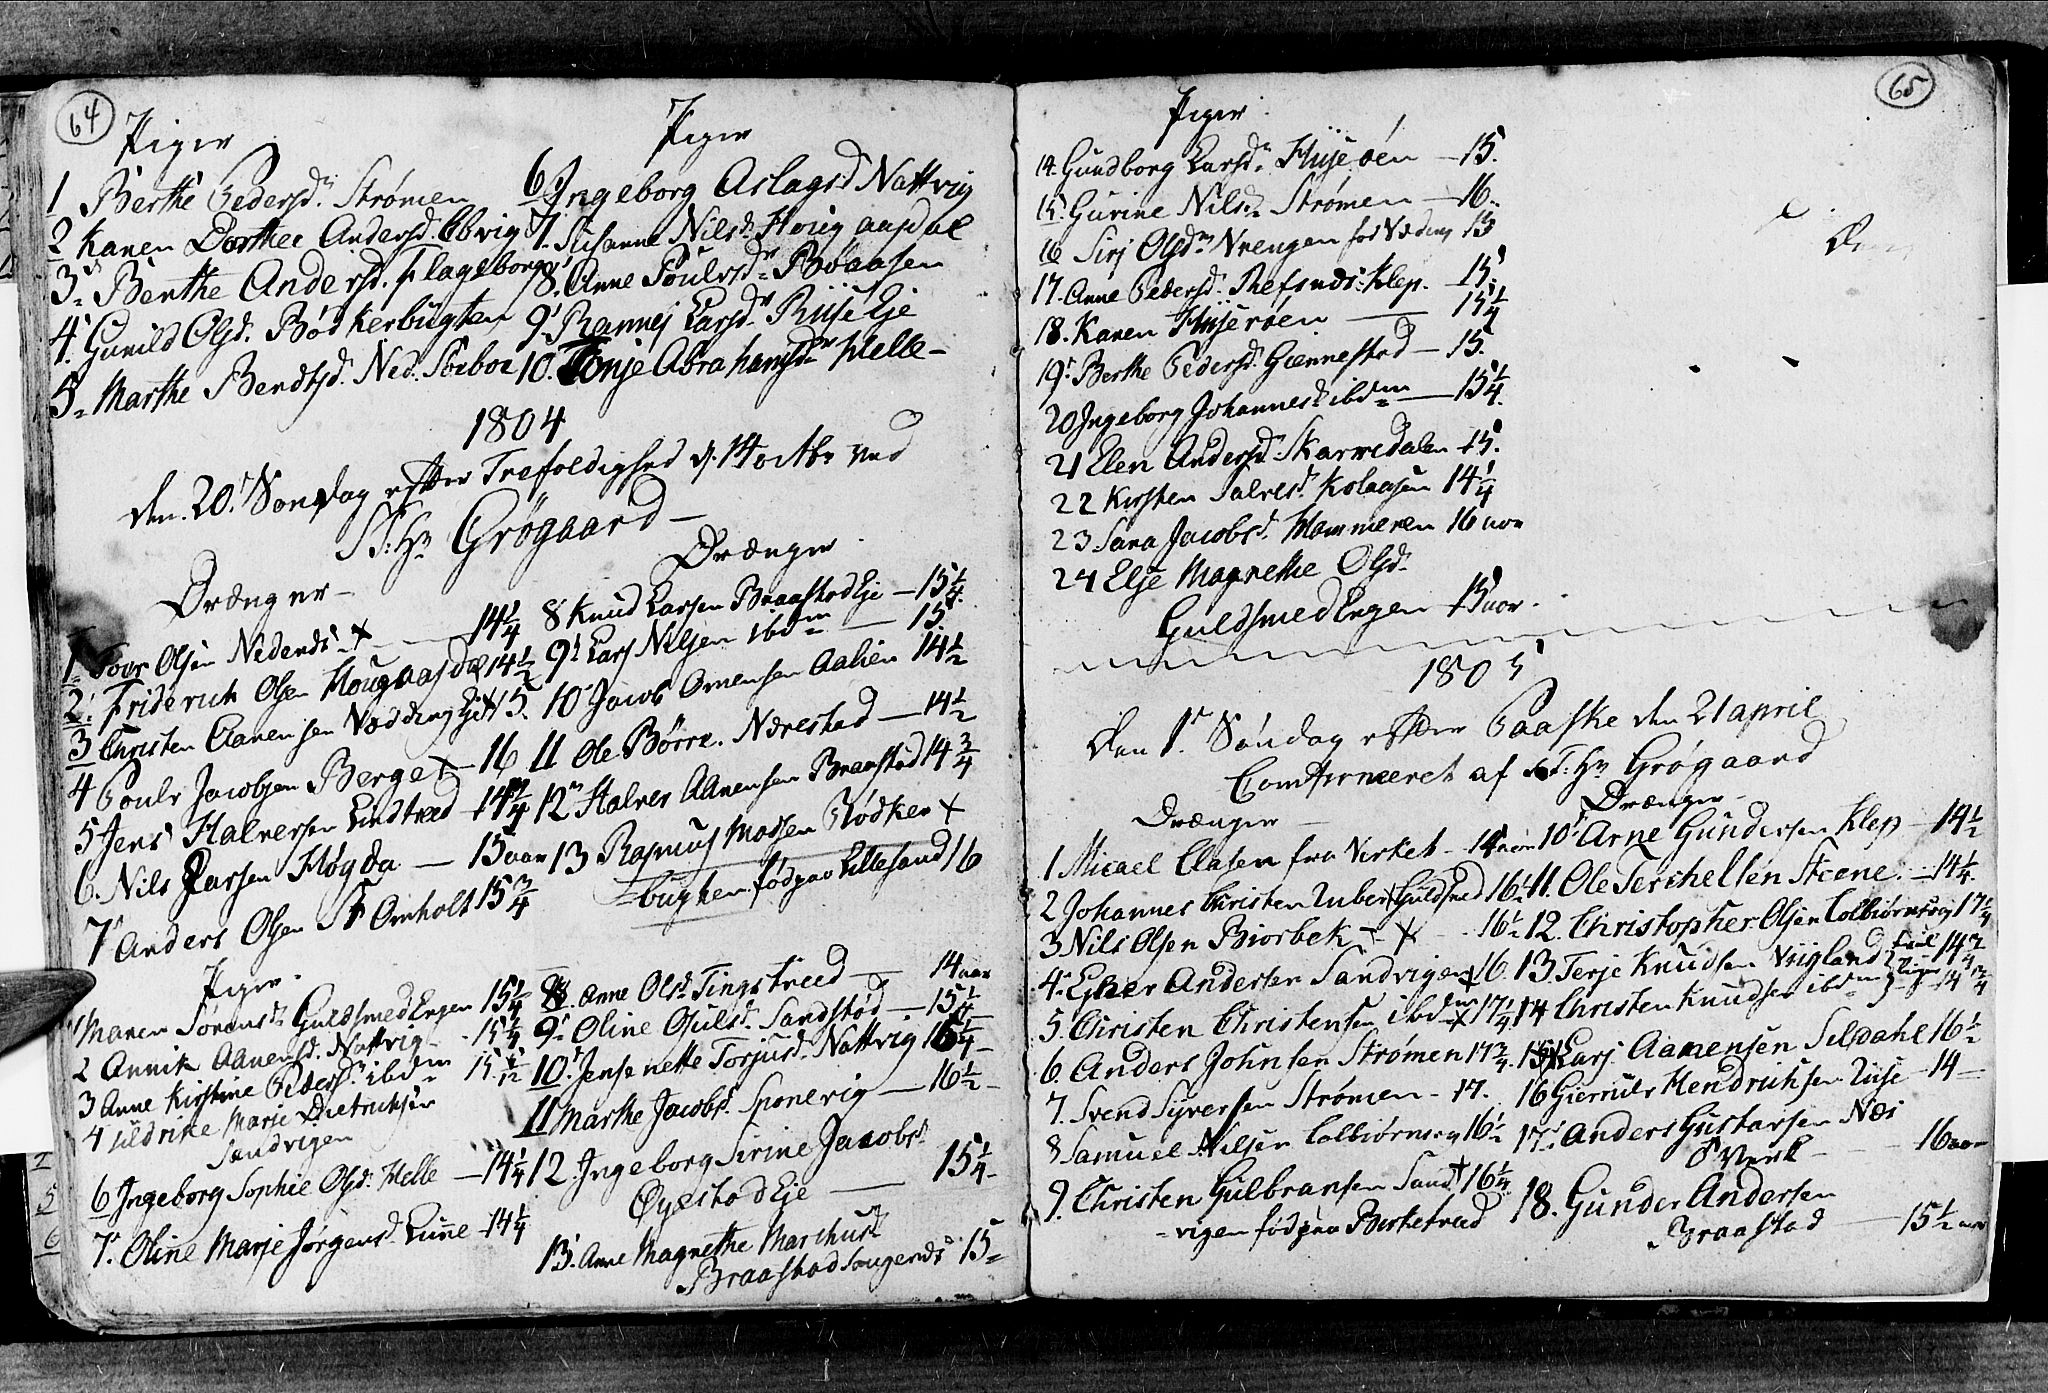 64
Piger
1 Berthe Pedersd. Strømen
2 Karen Dorthea Andersd. Ebvig
3. Berthe Andersd. Flageborg
4. Gunild Olsd. Bødkerbugten
5. Marthe Bendtsd. Ned. Søeboe
Piger
6 Ingeborg Aslagsd Nattvig
7. Susanne Nilsd. Houg aasdal
8. Anne Poulsd. Braasen
9. Rannej Larsd. Riise Eje
10. Tonje Abrahamsd. Helle
1804
den. 20. Søndag efter Trefoldighed d. 14 octbr ved
S. T: Hr Grøgaard
Drænger
1. Tovr Olsen Nedenes x 14 1/4
2. Friderich Olsen Hougaasdal 14 1/2
3 Christen Aanensen Vedding Eje x 15.
4 Pouls Jacobsen Berge x 16
5 Jens Halversen Lindtved 14 3/4
6. Nils Larsen Høgda 15 aar
7 Anders Olsen St Omholt 15 3/4
Drænger
8 Knud Larsen Braastad Eje 15 1/4
9. Lars Nilsen ibdm 15
10 Jacob Omensen Aalien 14 1/2
11 Ole Børre. Nærestad 14 1/2
12 Halver Aanensen Braastad 14 3/4
13 Rasmus Madsen Bødker x
bugten. fød paa Lillesand 16
Piger
1 Maren Sørensd. Guldsmed Engen 15 1/2
2 Annik Aanensd. Nattvig 15 1/4
3 Anne Kirstine Pedersd. ibdm 15 1/12
4 Uldrike Marie Dietrichsen
Sandvigen
6 Ingeborg Sophie Olsd: Helle 14 1/4
7. Oline Marie Jørgensd. Lunne 14 1/4
8. Anne Olsd. Tingstveed 14 aar
9. Oline Ojulsd. Sandstød 15 1/4
10. Jensenette Torjusd. Nattvig 15 1/4
11 Marthe Jacobsd. Sponevig 16 1/2
12. Ingeborg Sirine Jacobsd.
Øyestad Eje 15 1/4
13. Anne Magrethe Marchusd
Braastad Songenes 15
65
Piger
14. Gundborg Larsd. Huserøen 15.
15. Gurine Nilsd. Strømen 16.
16 Sirj Olsd. Vrengen fød Vedding 15
17. Anne Pedersd. Refsnes: Klep. 15
18. Karen Huserøen 15 1/4
19. Berthe Pedersd. Giennestad 15.
20 Ingeborg Johannesd. ibdm 15 1/4
21 Elen Andersd. Skarvedalen 15.
22 Kirsten Salvesd. Kolaasen 14 1/4
23 Sara Jacobsd. Hammeren 16 aar
24 Else Magrethe Olsd.
Guldsmed Engen 15 aar.
1805
Den 1. Søndag efter Paaske den 21 april
Comfirmeeret af S. T: Hr Grøgaard
Drænger
1 Micael Clasen fra Verket 15 aar
2 Johannes Christen Inber x Guldsmed 16 1/2
3 Nils Olsen Biorbek x 16 1/2
4. Eyher Andersen Sandvigen x 16.
5. Christen Christensen ibdm x 17 1/4
6. Anders Johnsen Strømen 17 3/4
7. Svend Syversen Strømen 17.
8 Samuel Nilsen Colbiørnsvig 16 1/2
9. Christen Gulbransen Sand x 16 1/4
vigen fød paa Birketvæd
Drænger
10. Arne Gundersen Klep 14 1/2
11. Ole Terchelsen Steene 14 1/4
12. Christopher Olsen Colbiørnsvig 17 1/4
13. Terje Knudsen Vrigland 14 3/4
14 Christen Knudsen ibdm 14 3/4
15 Lars Aanensen Seldahl 16 1/2
16 Gierruls Hendrichsen Riise 14
17. Anders Gustavsen Næs
Verk 16 aar
18. Gunder Andersen
Braastad 15 1/2 aar